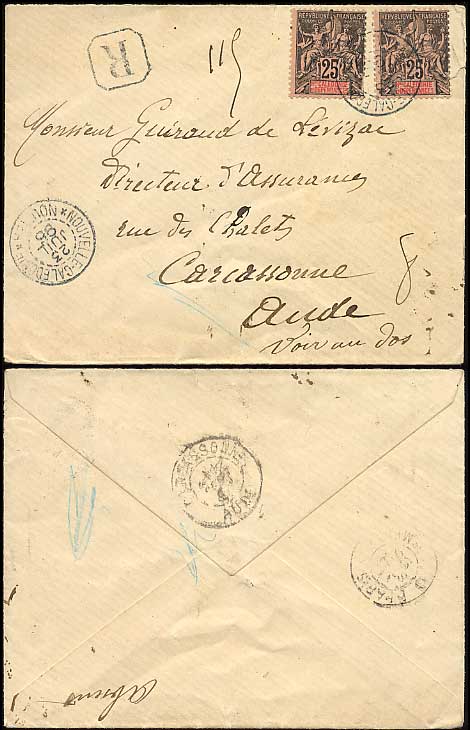 R
115
RÉPUBLIQUE FRANÇAISE
25
RÉPUBLIQUE FRANÇAISE
25
Monsieur Guiraud de Lévizac
Directeur d'Assurances
rue des Chalets
Carcassonne
Aude
Voir au dos
NOUVELLE-CALEDONIE
23
JUIL
CARCASSONNE
AUDE
PARIS